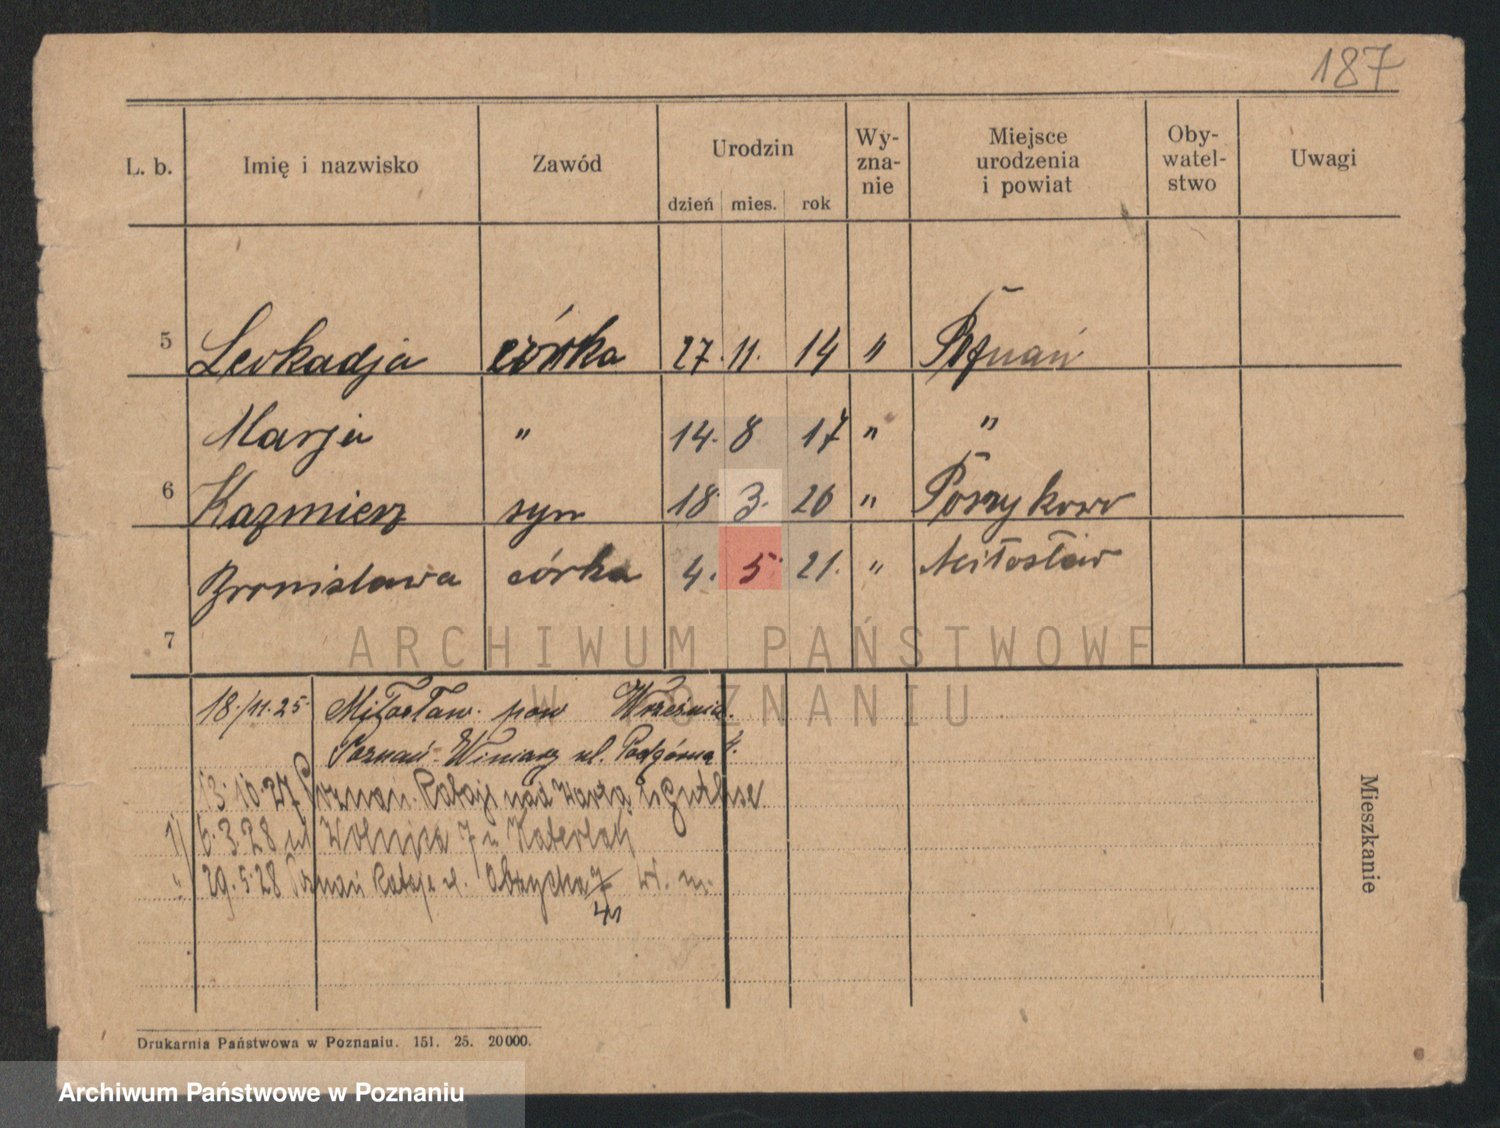 187
L. b. Imię i nazwisko Zawód Urodzin dzień mies. rok Wy-zna-nie Miejsce urodzenia i powiat Oby-watel-stwo Uwagi
5 Leokadja córka 27. 11. 14 " Poznań
Marja " 14. 8 17 " "
6 Kazmierz syn 18 3. 20 "
Bronisława córka 4. 5 21. " Miłosław
7
ARCHIWUM PAŃSTWOWE
W POZNANIU
18./11.25 Miłosław. pow Września.
Poznań-Winiary ul. Podgórna 4.
13.10.27 Poznań. Rataje nad Wartą
1) 6.3.28 ul Wolnica 7 u
" 29.5.28 Poznań Rataje ul.
Mieszkanie
Drukarnia Państwowa w Poznaniu. 151. 25. 20000.
Archiwum Państwowe w Poznaniu